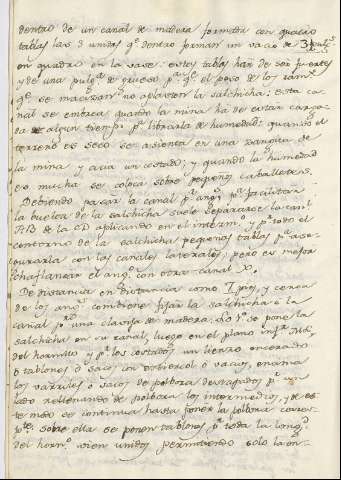 dentro de un canal de madera formado con quatro
tablas las 3 unidas q.e dentro forman un vacio de 3 pulg.s
en quadro en la vase: estas tablas han de ser fuertes
y de una pulg.a de grueso p.a q.e el peso de los ram.s
q.e se macizan no aplasten la salchicha: esta ca-
nal se embrea quando la mina ha de estar carga-
da algun tiempo p.a librarla de humedad: quando el
terreno es seco se asienta en una zangita de
la mina y a un costado; y quando la humedad
es mucha se coloca sobre pequeños caballetes.
Debiendo pasar la canal p.r ang.s p.a facilitar
la buelta de la salchicha suele separarse la canl
AB de la CD aplicando en el interm.o y p.r todo el
contorno de la salchicha pequeñas tablas p.a ase-
gurarla con las canales laterales; pero es mejor
chaflanear el ang.o con otra canal X.
De distancia en distancia como 1 pies, y cerca
de los ang.s combiene fijar la salchicha a la
canal p.r una clavija de madera. Lo 1.o se pone la
salchicha en su canal, luego en el plano inf.r
del hornillo y p.r los costados un lienzo encerado
o tablones ó sacos con enbreado ó vacios, encima
los varriles ó sacos de polbora destapados p.r un
lado rellenando de polbora los intermedios, y de es-
te modo se continua hasta poner la polbora corres-
p.te sobre ella se ponen tablones p.r toda la long.d
del horn.o vien unidos permitiendo solo la en-